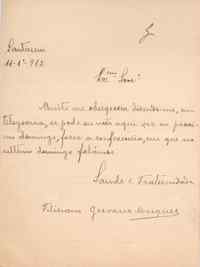 Santarem
11-1º-912
Exmo Snr.
Muito me obsequeia dizendo-me, em
telegrama, se pode ou não aqui vir no proxi-
mo domingo, fazer a conferencia, em que no
ultimo domingo falámos.
Saude e Fraternidade
Feliciano